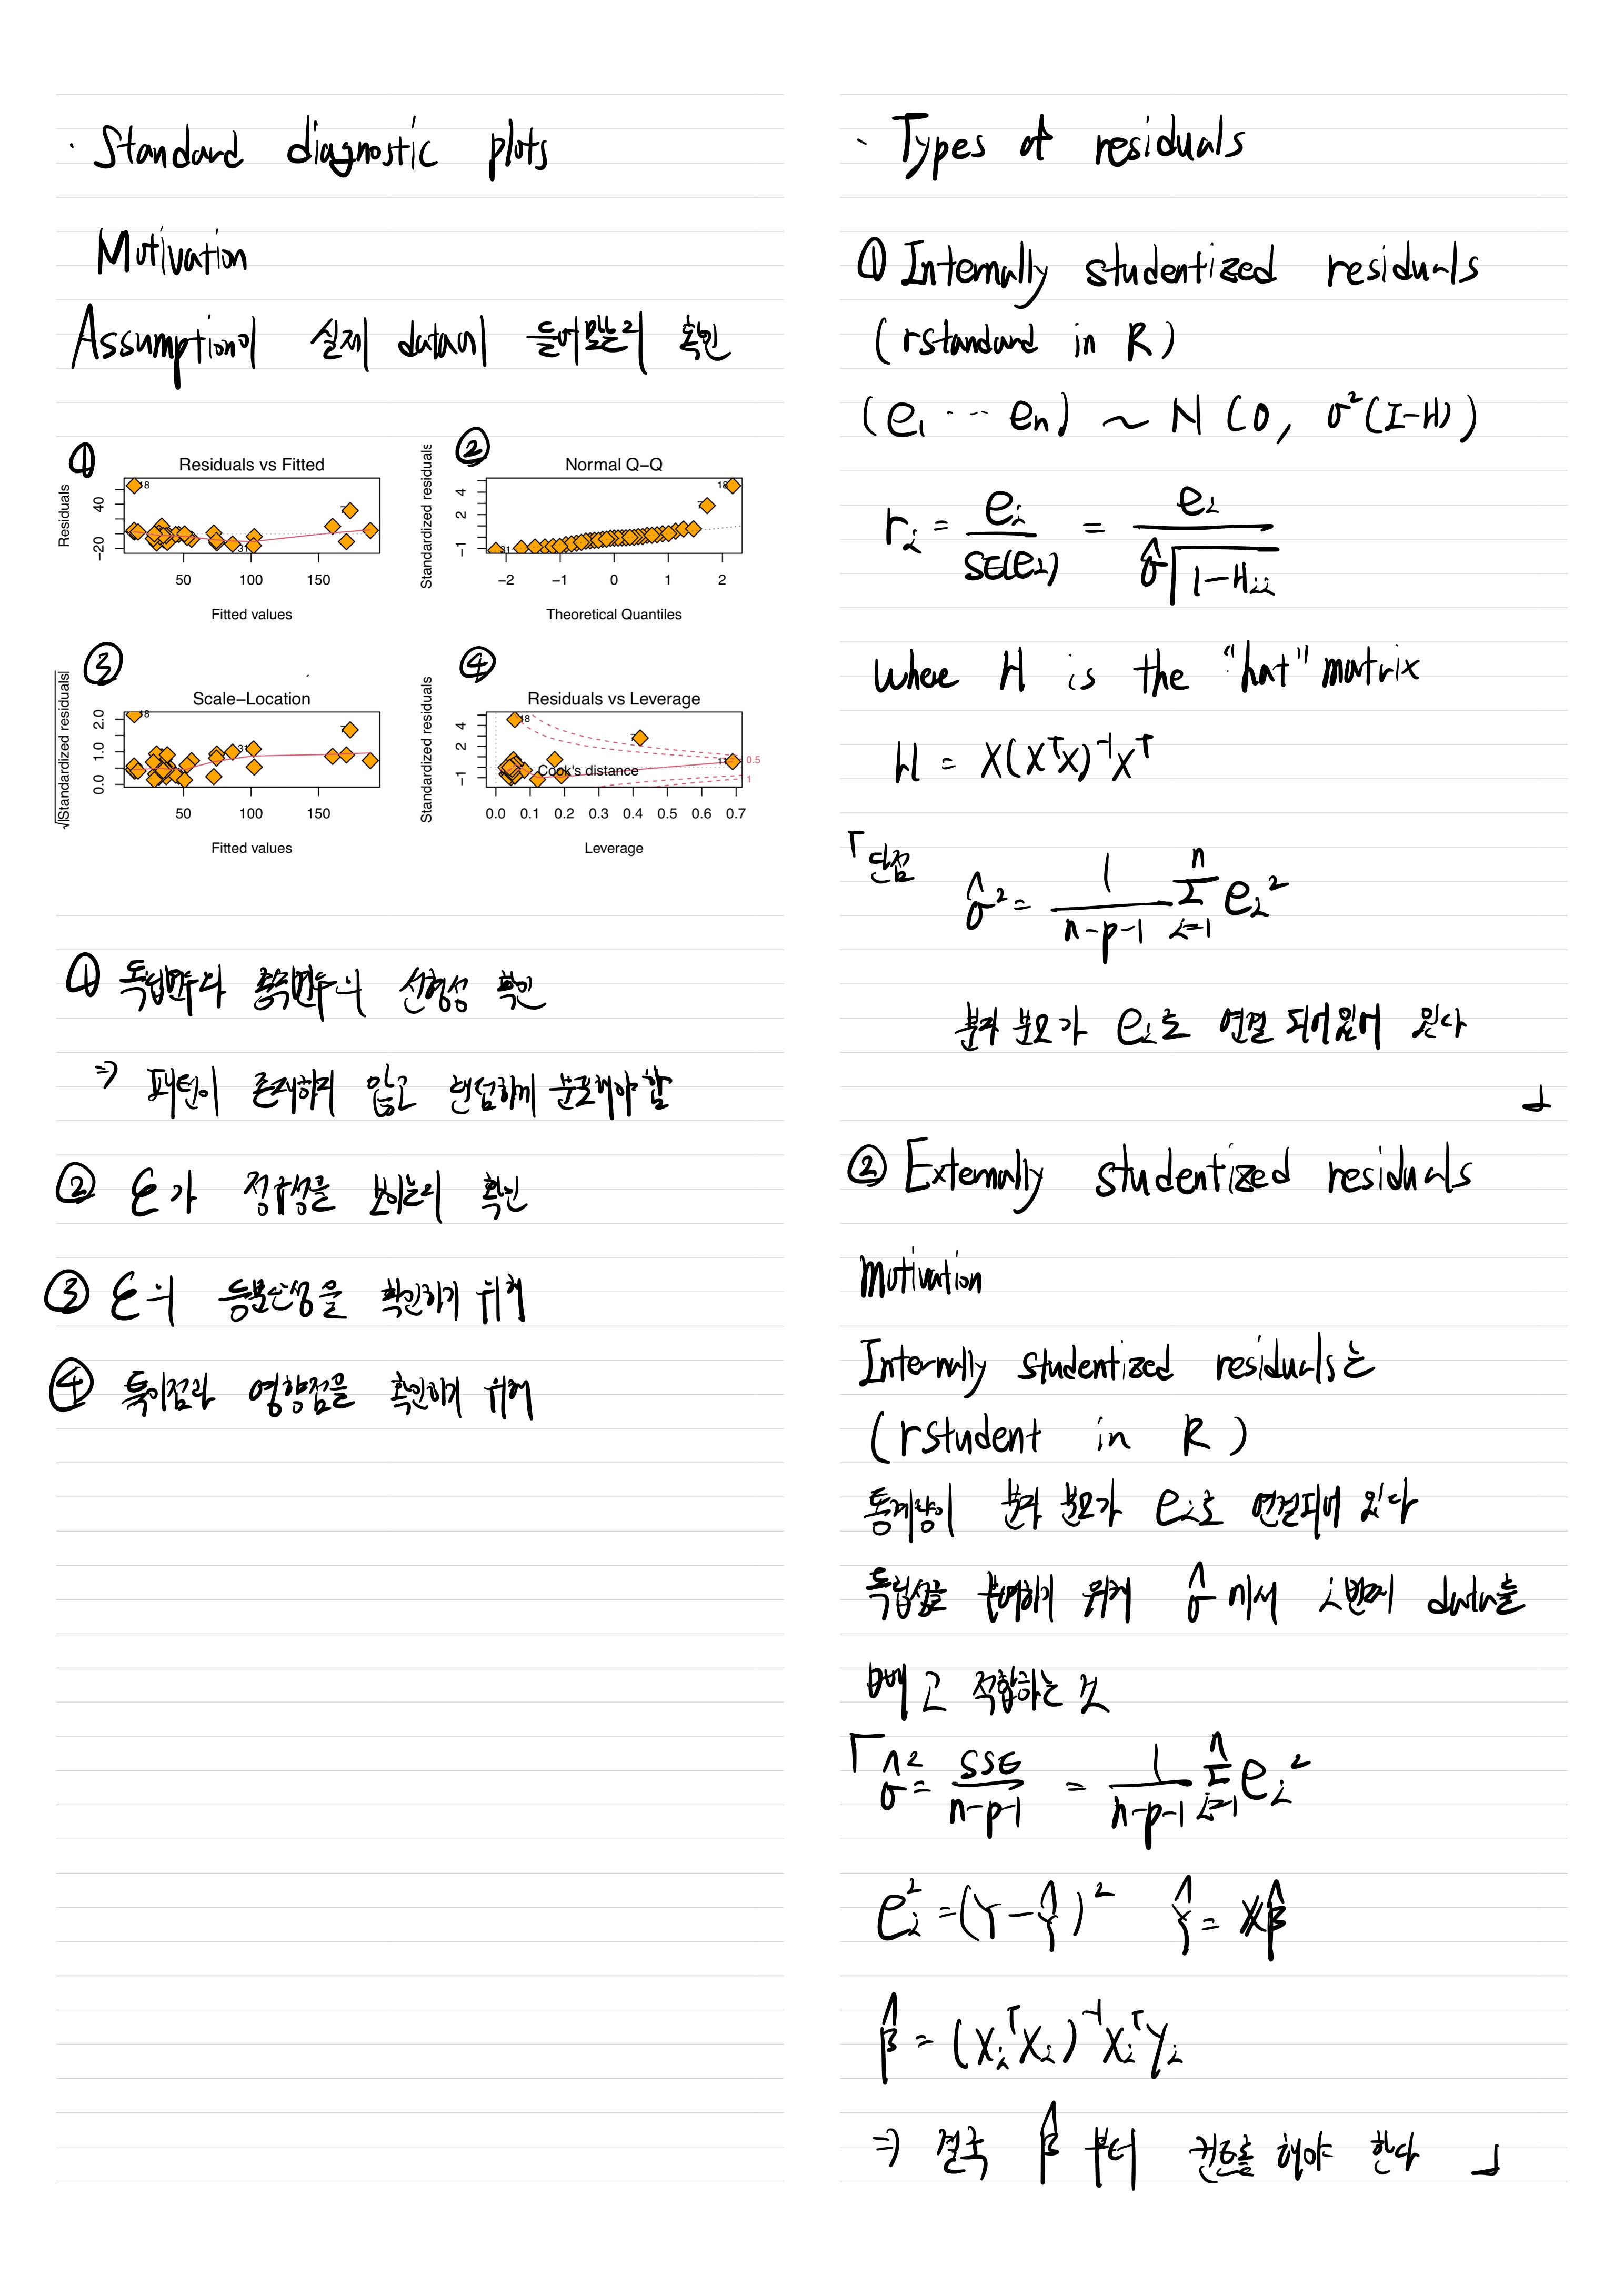 · Standard diagnostic plots
Motivation
Assumption이 실제 data에 들어맞는지 확인
①
Residuals vs Fitted
Residuals
40
-20
18
31
50 100 150
Fitted values
②
Normal Q-Q
Standardized residuals
4
2
-1
18
31
-2 -1 0 1 2
Theoretical Quantiles
③
Scale-Location
√|Standardized residuals|
2.0
1.0
0.0
18
31
50 100 150
Fitted values
④
Residuals vs Leverage
Standardized residuals
4
2
-1
18
11
Cook's distance
0.5
1
0.0 0.1 0.2 0.3 0.4 0.5 0.6 0.7
Leverage
① 독립변수와 종속변수의 선형성 확인
⇒ 패턴이 존재하지 않고 랜덤하게 분포해야 함
② ε가 정규성을 보이는지 확인
③ ε의 등분산성을 확인하기 위해
④ 특이점과 영향점을 확인하기 위해
· Types of residuals
① Internally studentized residuals
(rstandard in R)
(e₁ ··· eₙ) ~ N(0, σ²(I-H))
rᵢ = eᵢ / SE(eᵢ) = eᵢ / σ̂√(1-Hᵢᵢ)
where H is the "hat" matrix
H = X(XᵀX)⁻¹Xᵀ
「단점
σ̂² = 1/(n-p-1) Σᵢ₌₁ⁿ eᵢ²
분자 분모가 eᵢ로 연결 되어있어 있다
」
② Externally studentized residuals
motivation
Internally studentized residuals는
(rstudent in R)
통계량이 분자 분모가 eᵢ로 연결되어 있다
독립성을 부여하기 위해 σ̂에서 i번째 data를
빼고 적합하는 것
「σ̂² = SSE/(n-p-1) = 1/(n-p-1) Σᵢ₌₁ⁿ eᵢ²
eᵢ² = (Y-Ŷ)² Ŷ = Xβ̂
β̂ = (XᵢᵀXᵢ)⁻¹XᵢᵀYᵢ
⇒ 결국 β̂ 부터 해야 한다 」